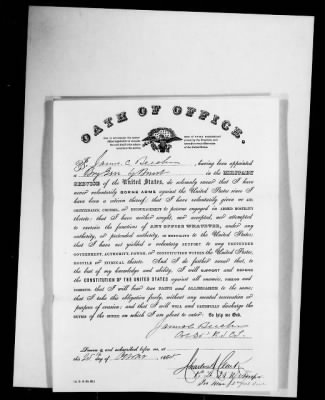 OATH OF OFFICE.
I, James C. Beecher having been appointed
Brig Gen by Brevet in the MILITARY
SERVICE of the United States, do solemnly swear that I have
never voluntarily BORNE ARMS against the United States since I
have been a citizen thereof; that I have voluntarily given no aid,
COUNTENANCE, COUNSEL, or ENCOURAGEMENT to persons engaged in ARMED HOSTILITY
thereto; that I have neither sought, nor accepted, nor attempted
to exercise the functions of ANY OFFICE WHATEVER, under any
authority, or pretended authority, in HOSTILITY to the United States;
that I have not yielded a voluntary support to any PRETENDED
GOVERNMENT, AUTHORITY, POWER, or CONSTITUTION WITHIN THE UNITED STATES,
HOSTILE or INIMICAL thereto. And I do further swear that, to
the best of my knowledge and ability, I will SUPPORT and DEFEND
the CONSTITUTION OF THE UNITED STATES against all enemies, FOREIGN and
DOMESTIC; that I will bear TRUE FAITH and ALLEGIANCE to the same;
that I take this obligation freely, without any mental reservation or
purpose of evasion; and that I will WELL and FAITHFULLY discharge the
duties of the OFFICE on which I am about to enter: So help me God.
James C Beecher
Sworn to and subscribed before me, at
this 25th day of